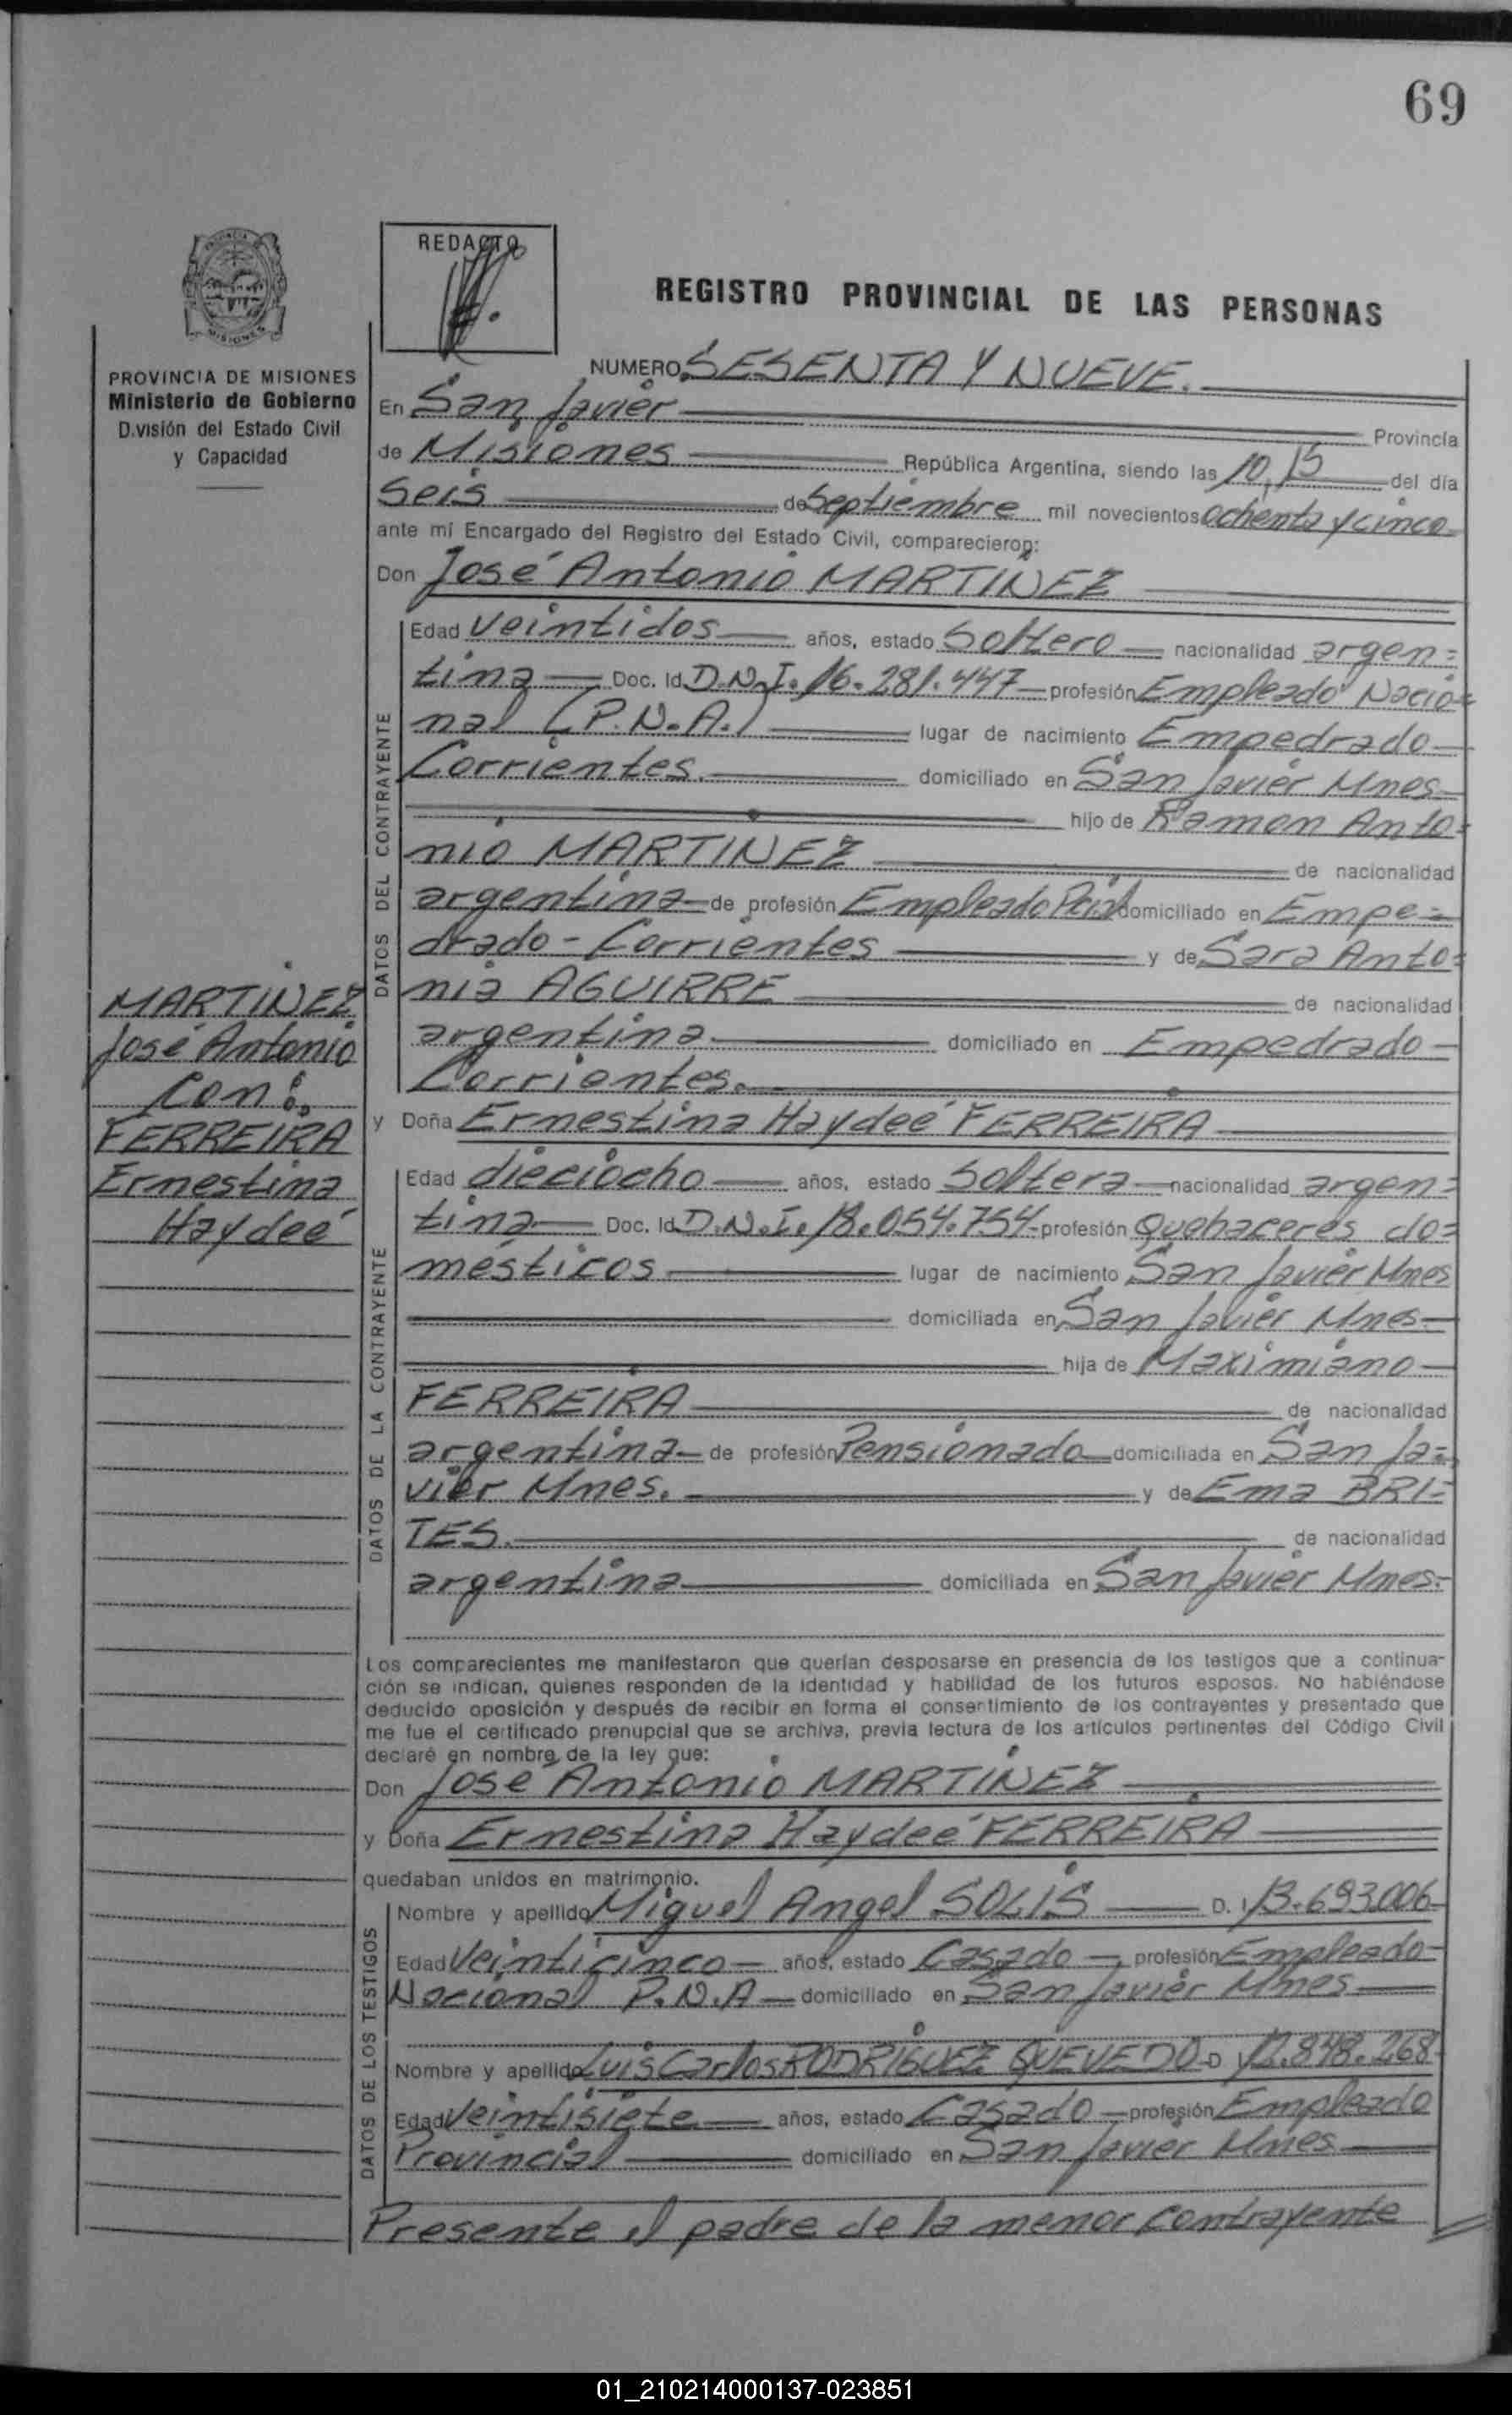 69
REDACTO
REGISTRO PROVINCIAL DE LAS PERSONAS
MISIONES
PROVINCIA DE MISIONES
Ministerio de Gobierno
D.visión del Estado Civil
y Capacidad
NUMERO SESENTA Y NUEVE.
En San Javier Provincia
de Misiones República Argentina, siendo las 10,15 del día
seis de Septiembre mil novecientos ochenta y cinco
ante mí Encargado del Registro del Estado Civil, comparecieron:
Don José Antonio MARTINEZ
DATOS DEL CONTRAYENTE
Edad veintidos años, estado Soltero nacionalidad argen=
tina Doc. Id D.N.I. 16.281.447 profesión Empleado Nacio=
nal (P.N.A.) lugar de nacimiento Empedrado
Corrientes. domiciliado en San Javier Mnes
hijo de Ramon Anto=
nio MARTINEZ de nacionalidad
argentina de profesión Empleado domiciliado en Empe=
drado - Corrientes y de Sara Anto=
nia AGUIRRE de nacionalidad
argentina domiciliado en Empedrado
Corrientes.
MARTINEZ
José Antonio
con:
FERREIRA
Ernestina
Haydeé
y Doña Ernestina Haydeé FERREIRA
DATOS DE LA CONTRAYENTE
Edad dieciocho años, estado Soltera nacionalidad argen=
tina Doc. Id D.N.I. 18.054.754 profesión Quehaceres do=
mésticos lugar de nacimiento San Javier Mnes
domiciliada en San Javier Mnes
hija de Maximiano
FERREIRA de nacionalidad
argentina de profesión Pensionado domiciliada en San Ja=
vier Mnes. y de Ema BRI=
TES. de nacionalidad
argentina domiciliada en San Javier Mnes.
Los comparecientes me manifestaron que querían desposarse en presencia de los testigos que a continua-
ción se indican, quienes responden de la identidad y habilidad de los futuros esposos. No habiéndose
deducido oposición y después de recibir en forma el consentimiento de los contrayentes y presentado que
me fue el certificado prenupcial que se archiva, previa lectura de los artículos pertinentes del Código Civil
declaré en nombre de la ley que:
Don José Antonio MARTINEZ
y Doña Ernestina Haydeé FERREIRA
quedaban unidos en matrimonio.
DATOS DE LOS TESTIGOS
Nombre y apellido Miguel Angel SOLIS D. I 13.693.006
Edad Veinticinco años, estado Casado profesión Empleado
Nacional P.N.A domiciliado en San Javier Mnes
Nombre y apellido Luis Carlos RODRIGUEZ QUEVEDO D I 12.848.268
Edad Veintisiete años, estado Casado profesión Empleado
Provincial domiciliado en San Javier Mnes
Presente el padre de la menor contrayente
01_210214000137-023851